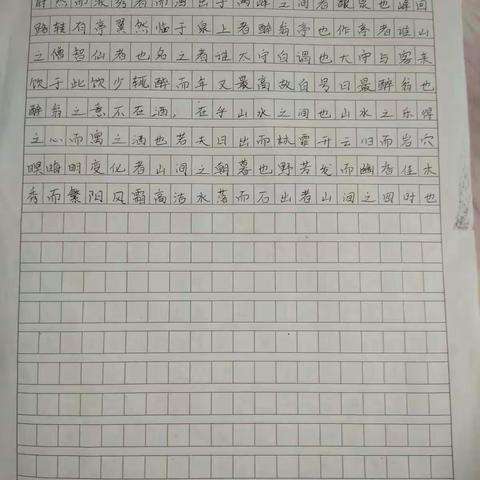 然而深秀者而泻出于两峰之间者酿泉也峰回
路转有亭翼然临于泉上者醉翁亭也作亭者谁山
之僧智仙者也名之者谁太守自谓也太守与客来
饮于此饮少辄醉而年又最高故自号曰最醉翁也
醉翁之意不在酒，在乎山水之间也山水之乐得
之心而寓之酒也若夫日出而林霏开云归而岩穴
暝晦明变化者山间之朝暮也野芳发而幽香佳木
秀而繁阳风霜高洁水落而石出者山间之四时也